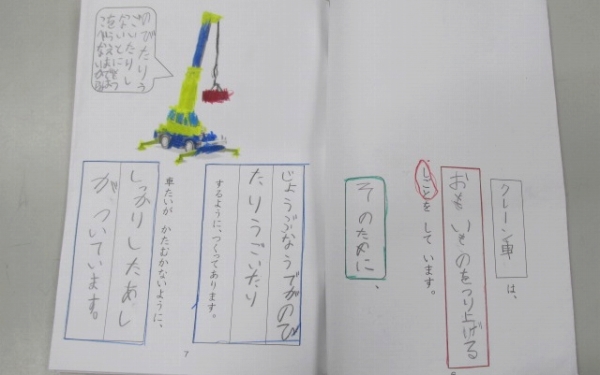 クレーン車
は、
おもいものをつり上げる
しごとを して います。
そのために、
じょうぶなうでがのび
たりうごいたり
するように、つくってあります。
車たいが かたむかないように、
しっかりしたあし
が、ついています。
のびたりう
ごいたりし
ないと
7
6